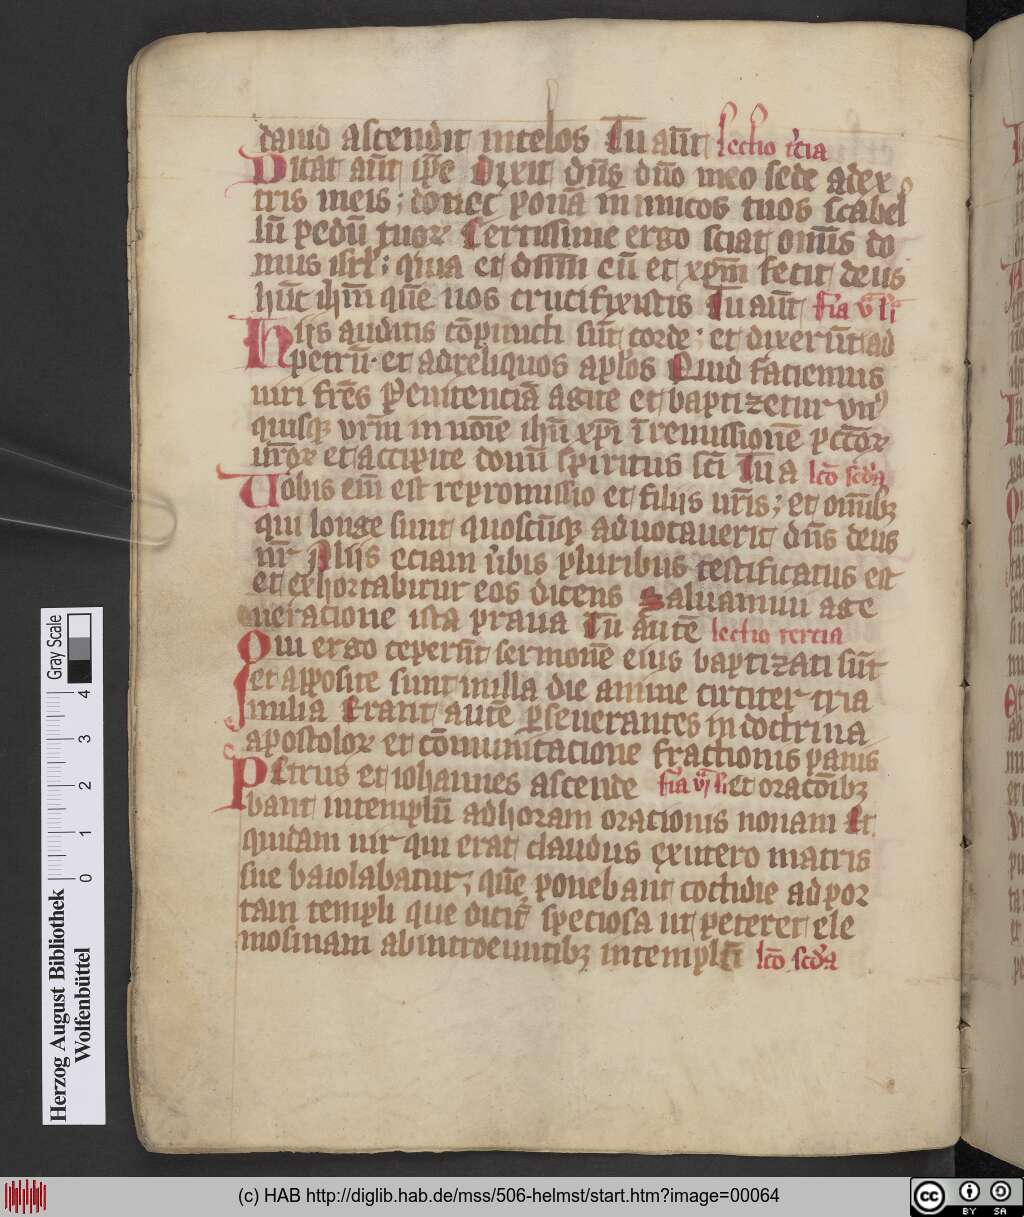 dauid ascendit in celos Tu aut̄ lectio t'cia
Dicit aūt ip̄e Dixit dn̄s dn̄o meo sede a dex
tris meis ; donec ponā inimicos tuos scabel
lū pedū tuoꝝ Certissime ergo sciat om̄is do
mus isrl' ; quia et dn̄m eū et xp̄m fecit deus
hūc ih̄m quē uos crucifixistis Tu aūt fr̄ia v̄ li
Hiis auditis cōpuncti sūt corde ; et dixerūt ad
petrū · et ad reliquos ap̄los Quid faciemus
uiri fr̄es Penitenciā agite et baptizetur vn9
quisqꝫ vr̄m in noīe ih̄u xp̄i ī remissionē pctōꝝ
ur̄oꝝ et accipite donū spiritus sc̄i Tu a lc̄o sc̄d'a
Uobis em̄ est repromissio et filijs ur̄is ; et om̄ibꝫ
qui longe sunt quoscūqꝫ aduocauerit dn̄s deus
nr̄ Alijs eciam u'bis pluribus testificatus est
et exhortabitur eos dicens Saluamini a ge
neracione ista praua Tu autē lectio tercia
Qui ergo ceperūt sermonē eius baptizati sūt
et apposite sunt in illa die anime circiter tria
milia Erant autē ꝑseuerantes in doctrina
apostoloꝝ et cōmunicacione fractionis panis
Petrus et iohannes ascende fr̄ia vj li et oracōibꝫ
bant in templū ad horam oracionis nonam Et
quidam uir qui erat claudus ex utero matris
sue baiolabatur ; quē ponebant cottidie ad por
tam templi que dicit̄ speciosa ut peteret ele
mosinam ab introeuntibꝫ in templū lc̄o sc̄d'a
Gray Scale
0 1 2 3 4
Herzog August Bibliothek
Wolfenbüttel
(c) HAB http://diglib.hab.de/mss/506-helmst/start.htm?image=00064
cc BY SA